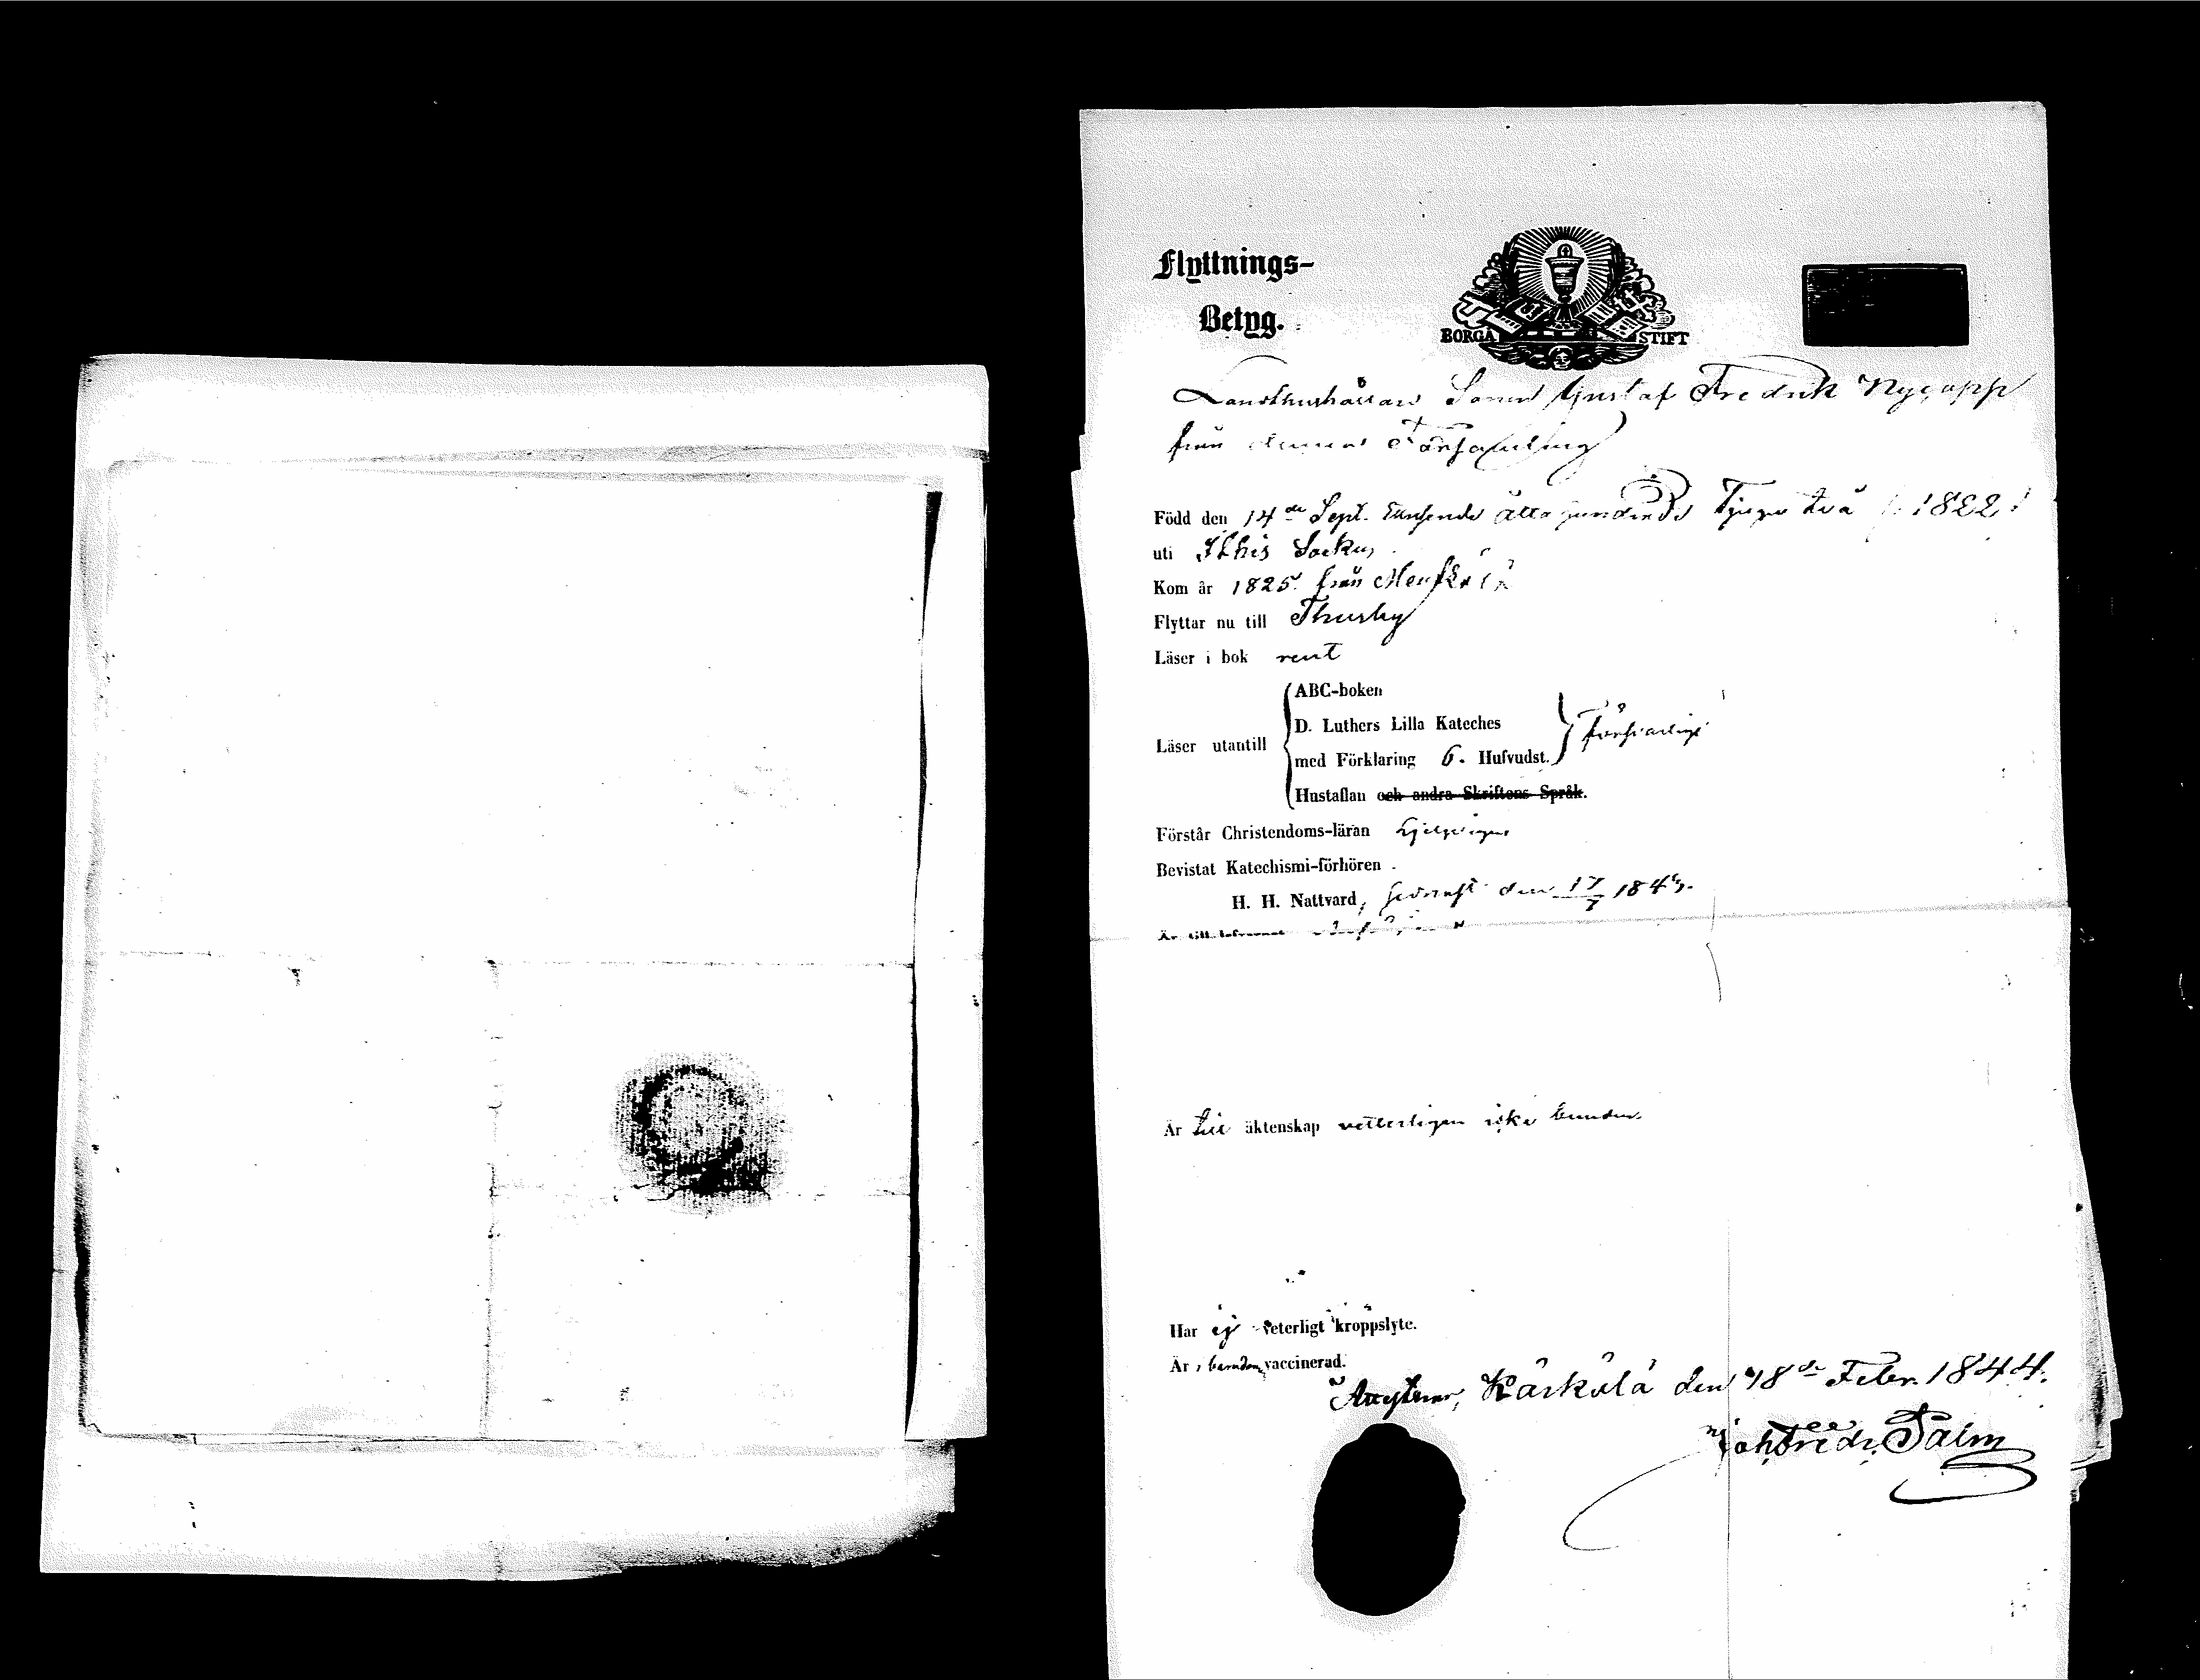 Flyttnings-
Betyg.
BORGÅ STIFT
Gustaf Fredrik Nygopp
från Församling
Född den 14de Sept. Tusende åtta hundrade Tjugu två /: 1822 :/
uti Socken
Kom år 1825. från
Flyttar nu till Thusby
Läser i bok rent
Läser utantill
ABC-boken
D. Luthers Lilla Kateches
med Förklaring 6. Hufvudst.
Hustaflan och andra Skriftens Språk.
försvarligt
Förstår Christendoms-läran
Bevistat Katechismi-förhören
H. H. Nattvard, den 184
Är till lefvernet
Är till äktenskap vetterligen icke bunden.
Har ej veterligt kroppslyte.
Är i barndom vaccinerad.
Kärkölä den 18de Febr. 1844.
Joh Fredr. Palm